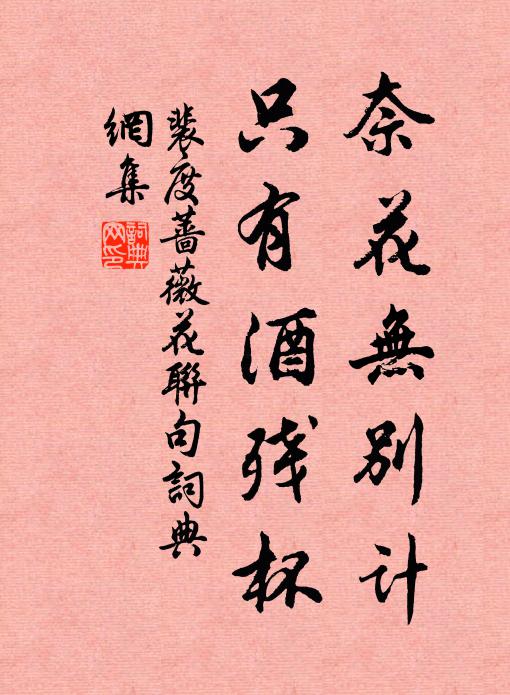 奈花無別计
只有酒残杯
裴度蔷薇花聯句詞典
網集
詞典
网印